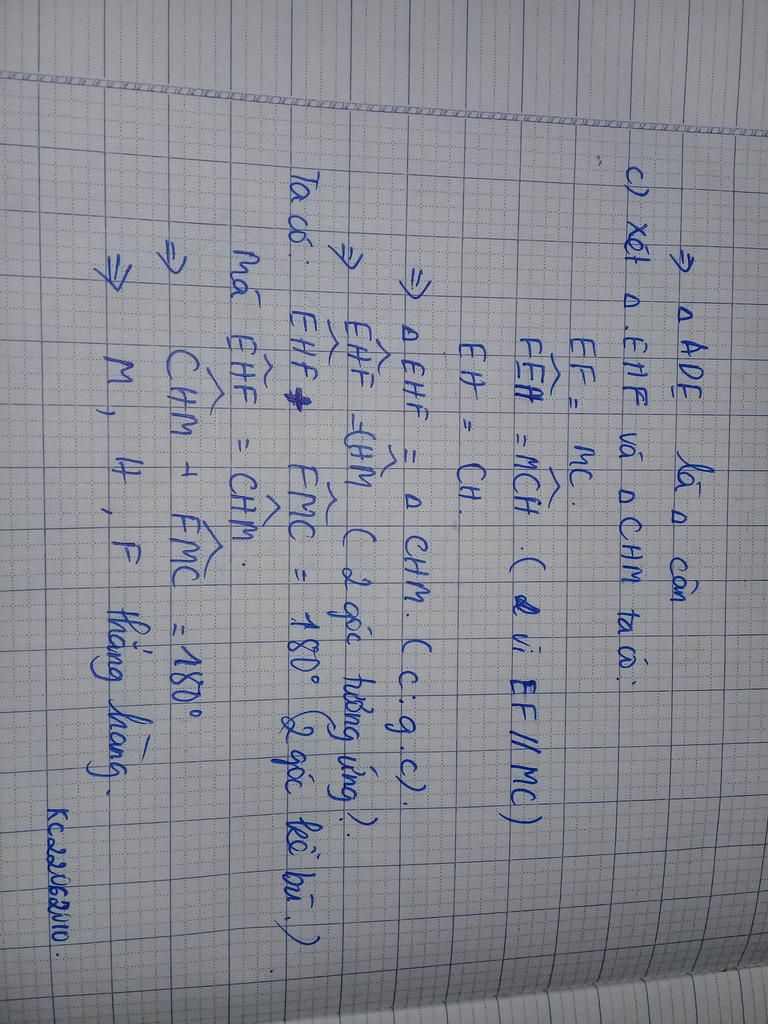 ⇒ Δ ADE là Δ cân
c) Xét Δ EHF và Δ CHM ta có:
EF = MC.
FEH = MCH . ( vì EF // MC )
EH = CH.
⇒ Δ EHF = Δ CHM. ( c. g. c).
⇒ EHF = CHM ( 2 góc tương ứng ).
Ta có: EHF + FMC = 180° ( 2 góc kề bù. )
mà EHF = CHM.
⇒ CHM + FMC = 180°
⇒ M, H, F thẳng hàng.